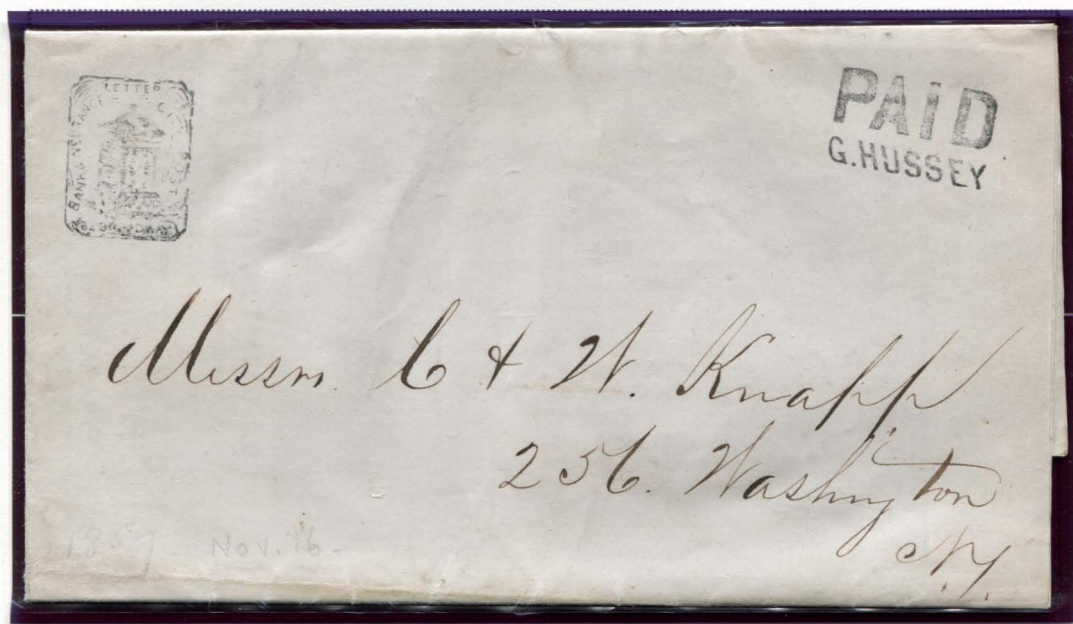 LETTER
BANK & INSURANCE CITY POST
BROADWAY
PAID
G. HUSSEY
Messrs. C & W. Knapp
256. Washington
N.Y.
Nov. 16-